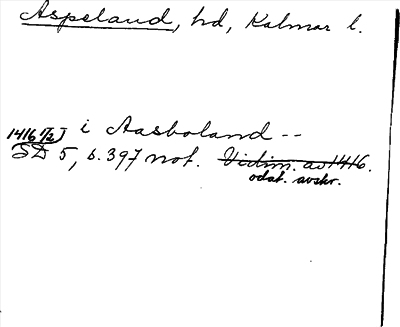 Aspeland, hd, Kalmar l.
1416 1/2] i Aasboland --
SD 5, s. 397 not. Vidim. av 1416.
odat. avskr.